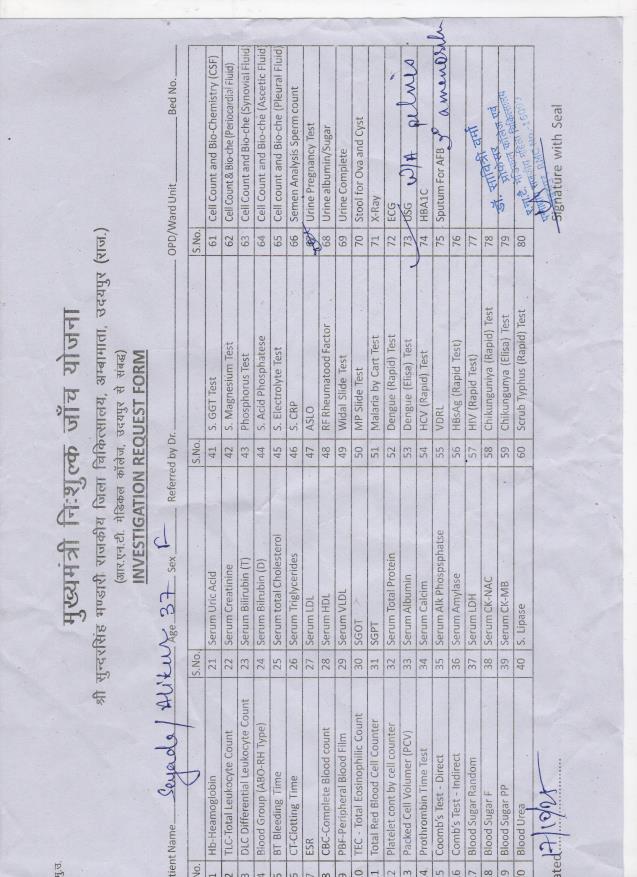 मुख्यमंत्री निःशुल्क जाँच योजना
श्री सुन्दरसिंह भण्डारी राजकीय जिला चिकित्सालय, अम्बामाता, उदयपुर (राज.)
(आर.एन.टी. मेडिकल कॉलेज, उदयपुर से संबद्ध)
INVESTIGATION REQUEST FORM
tient Name Age 37 Sex F Referred by Dr. OPD/Ward Unit Bed No.
No. S.No. S.No. S.No.
1 Hb-Heamoglobin 21 Serum Uric Acid 41 S. GGT Test 61 Cell Count and Bio-Chemistry (CSF)
2 TLC-Total Leukocyte Count 22 Serum Creatinine 42 S. Magnesium Test 62 Cell Count & Bio-che (Periocardial Fluid)
3 DLC Differential Leukocyte Count 23 Serum Bilirubin (T) 43 Phosphorus Test 63 Cell Count and Bio-che (Synovial Fluid)
4 Blood Group (ABO-RH Type) 24 Serum Bilrubin (D) 44 S. Acid Phosphatese 64 Cell count and Bio-che (Ascetic Fluid)
5 BT Bleeding Time 25 Serum total Cholesterol 45 S. Electrolyte Test 65 Cell count and Bio-che (Pleural Fluid)
CT-Clotting Time 26 Serum Triglycerides 46 S. CRP 66 Semen Analysis Sperm count
ESR 27 Serum LDL 47 ASLO Urine Pregnancy Test
8 CBC-Complete Blood count 28 Serum HDL 48 RF Rheumatood Factor 68 Urine albumin/Sugar
9 PBF-Peripheral Blood Film 29 Serum VLDL 49 Widal Slide Test 69 Urine Complete
0 TEC - Total Eosinophilic Count 30 SGOT 50 MP Slide Test 70 Stool for Ova and Cyst
1 Total Red Blood Cell Counter 31 SGPT 51 Malaria by Cart Test 71 X-Ray
2 Platelet cont by cell counter 32 Serum Total Protein 52 Dengue (Rapid) Test 72 ECG
3 Packed Cell Volumer (PCV) 33 Serum Albumin 53 Dengue (Elisa) Test 73 USG W/A pelvis
4 Prothrombin Time Test 34 Serum Calcim 54 HCV (Rapid) Test 74 HBA1C
5 Coomb's Test - Direct 35 Serum Alk Phospsphatse 55 VDRL 75 Sputum For AFB
6 Comb's Test - Indirect 36 Serum Amylase 56 HBsAg (Rapid Test) 76
7 Blood Sugar Random 37 Serum LDH 57 HIV (Rapid Test) 77
8 Blood Sugar F 38 Serum CK-NAC 58 Chikunguniya (Rapid) Test 78
9 Blood Sugar PP 39 Serum CK-MB 59 Chikungunya (Elisa) Test 79
0 Blood Urea 40 S. Lipase 60 Scrub Typhus (Rapid) Test 80
डॉ. सावित्री वर्मा
ated Signature with Seal